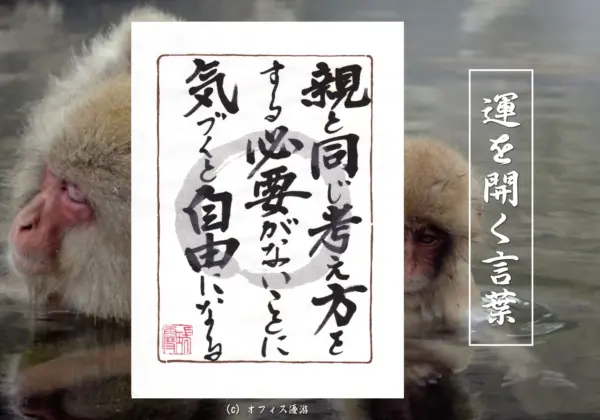 運を開く言葉
親と同じ考え方を
する必要がないことに
気づくと自由になる
(c) オフィス優游